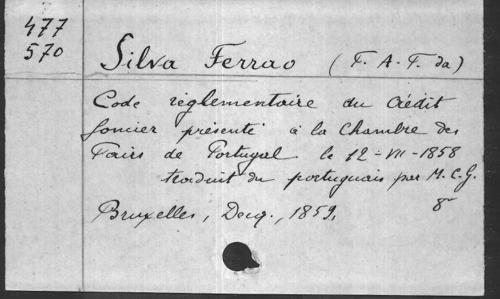 477
570
Silva Ferrao (F. A. F. da)
Code règlementaire du Crédit
foncier présenté à la Chambre des
Pairs de Portugal le 12-VII-1858
traduit du portuguais par M. C. G.
Bruxelles, Decq, 1859, 8°